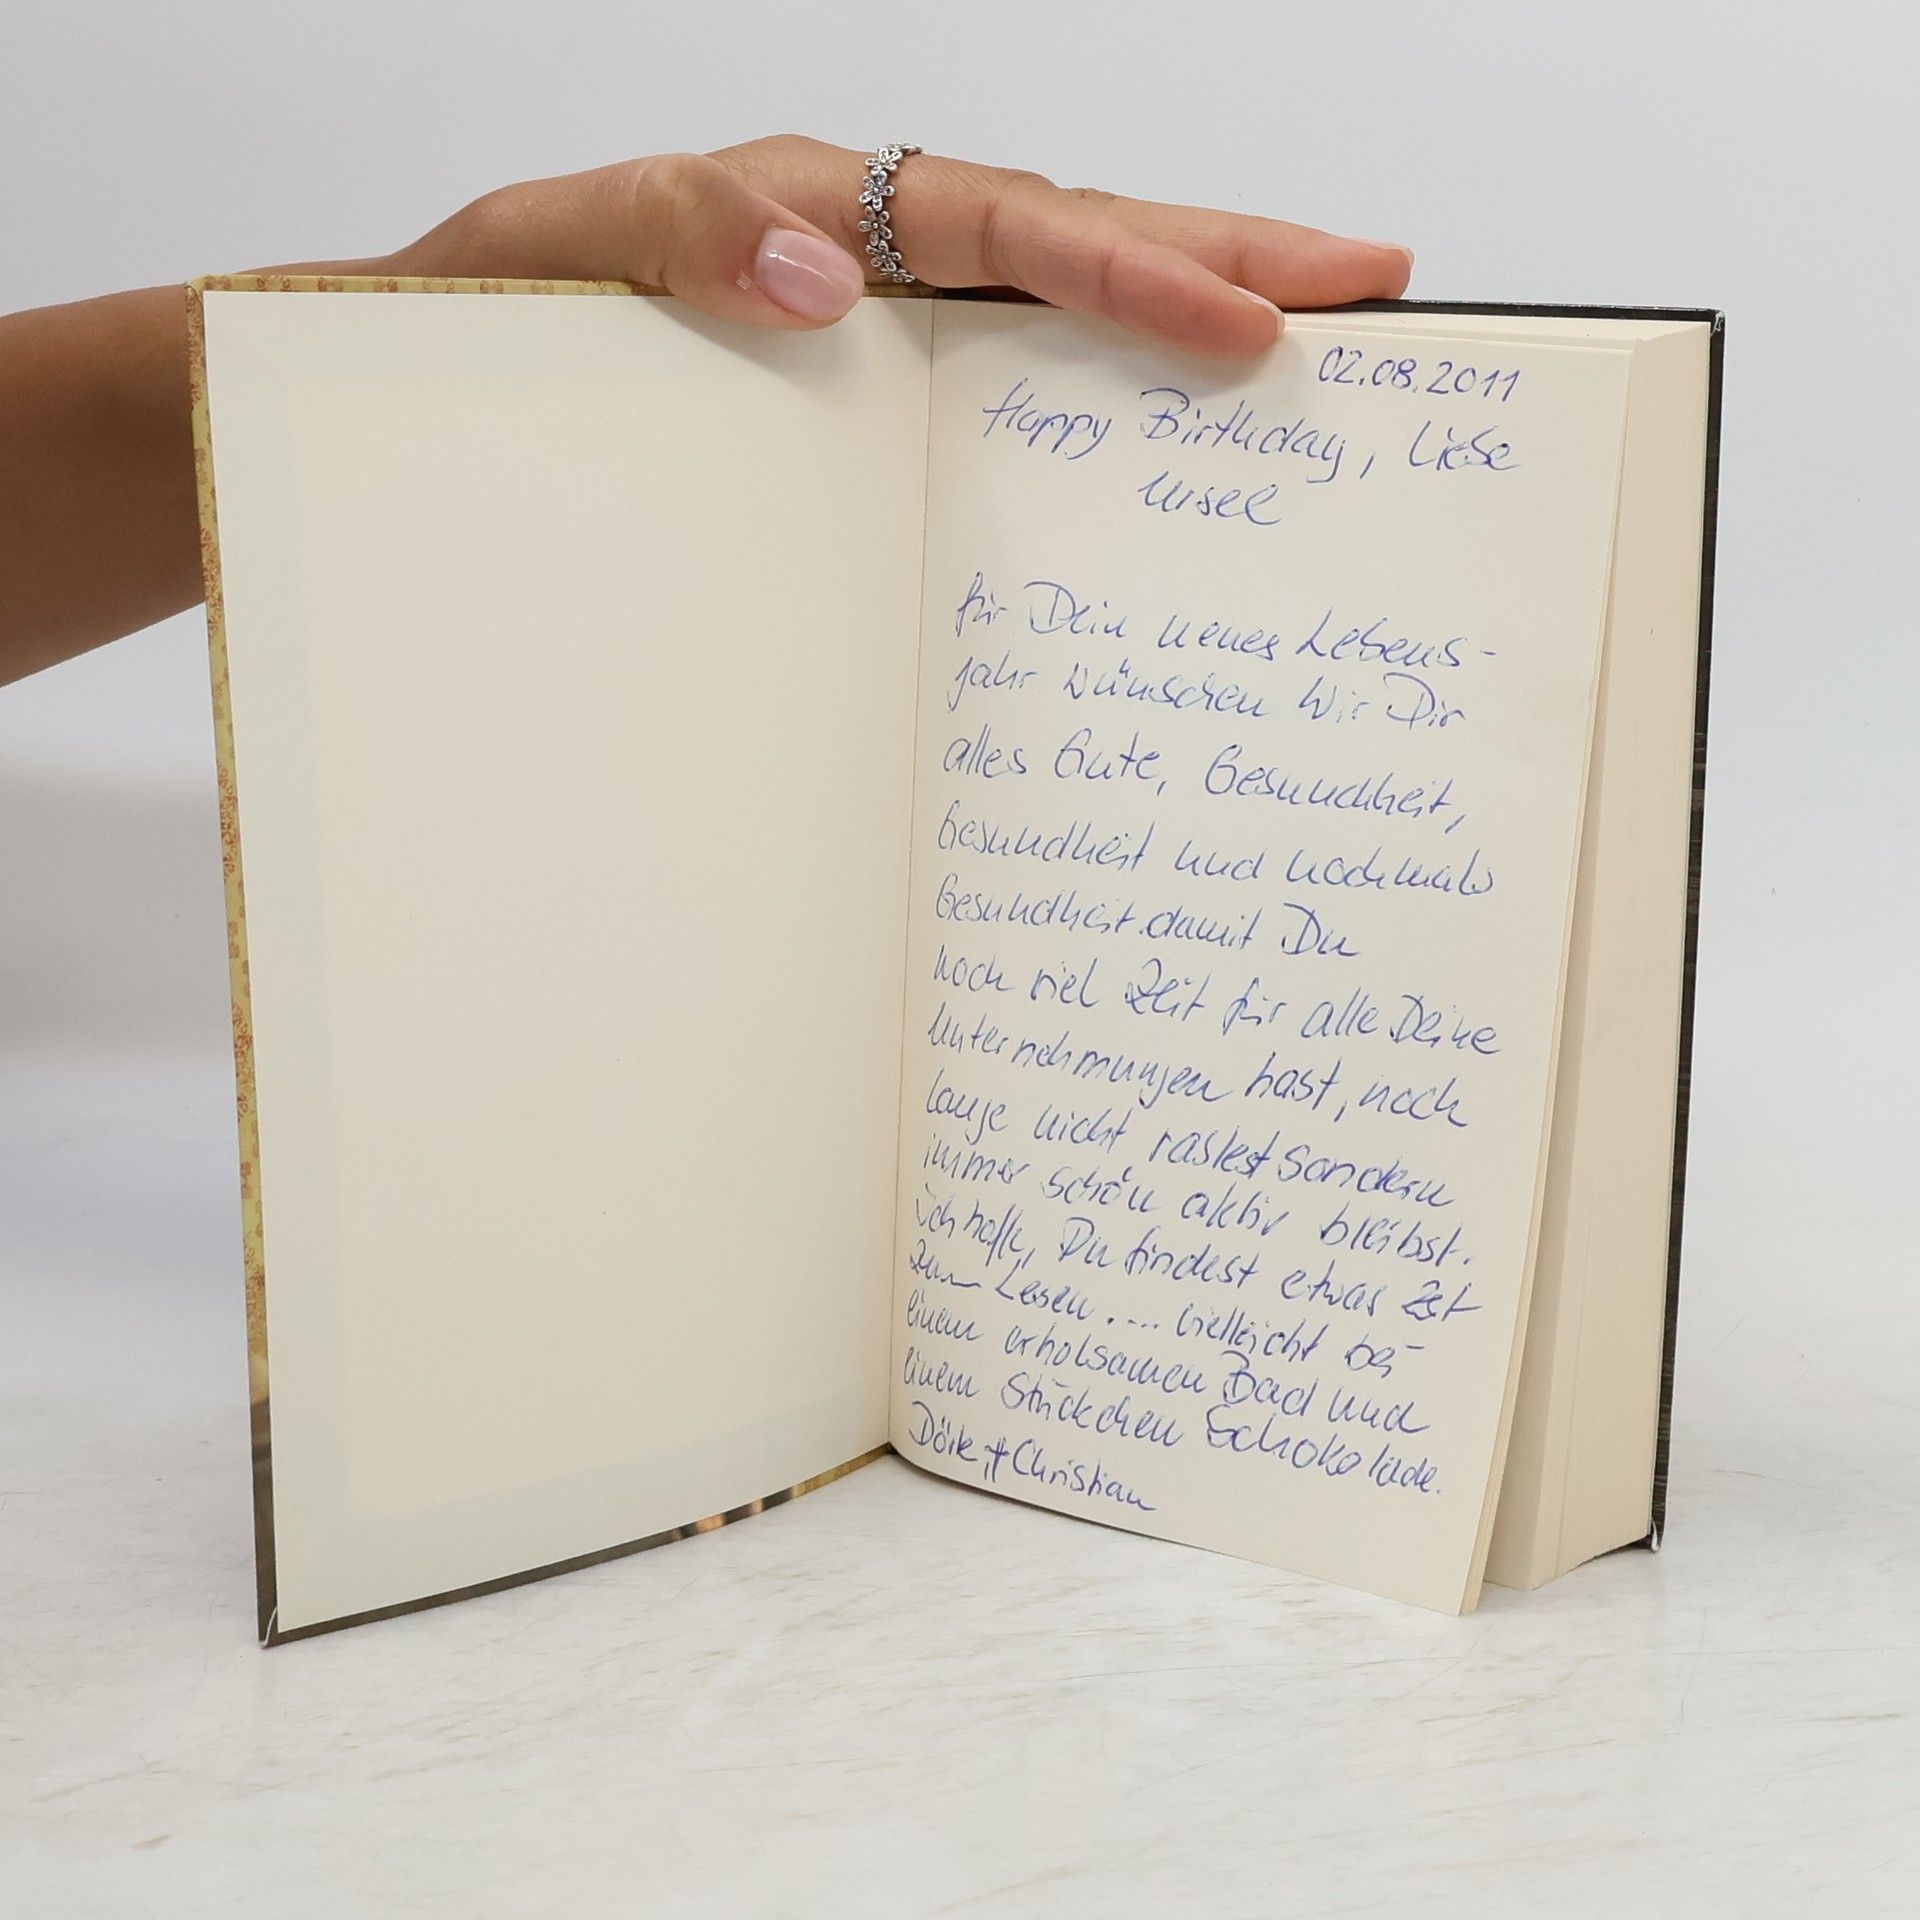 02.08.2011
Happy Birthday, Liebe
Ursel
für Dein neues Lebens-
jahr wünschen Wir Dir
alles Gute, Gesundheit,
Gesundheit und nochmals
Gesundheit damit Du
noch viel Zeit für alle Deine
Unternehmungen hast, noch
lange nicht rastest sondern
immer schön aktiv bleibst.
Ich hoffe, Du findest etwas Zeit
zum Lesen .... vielleicht bei
einem erholsamen Bad und
einem Stückchen Schokolade.
Dörk + Christian